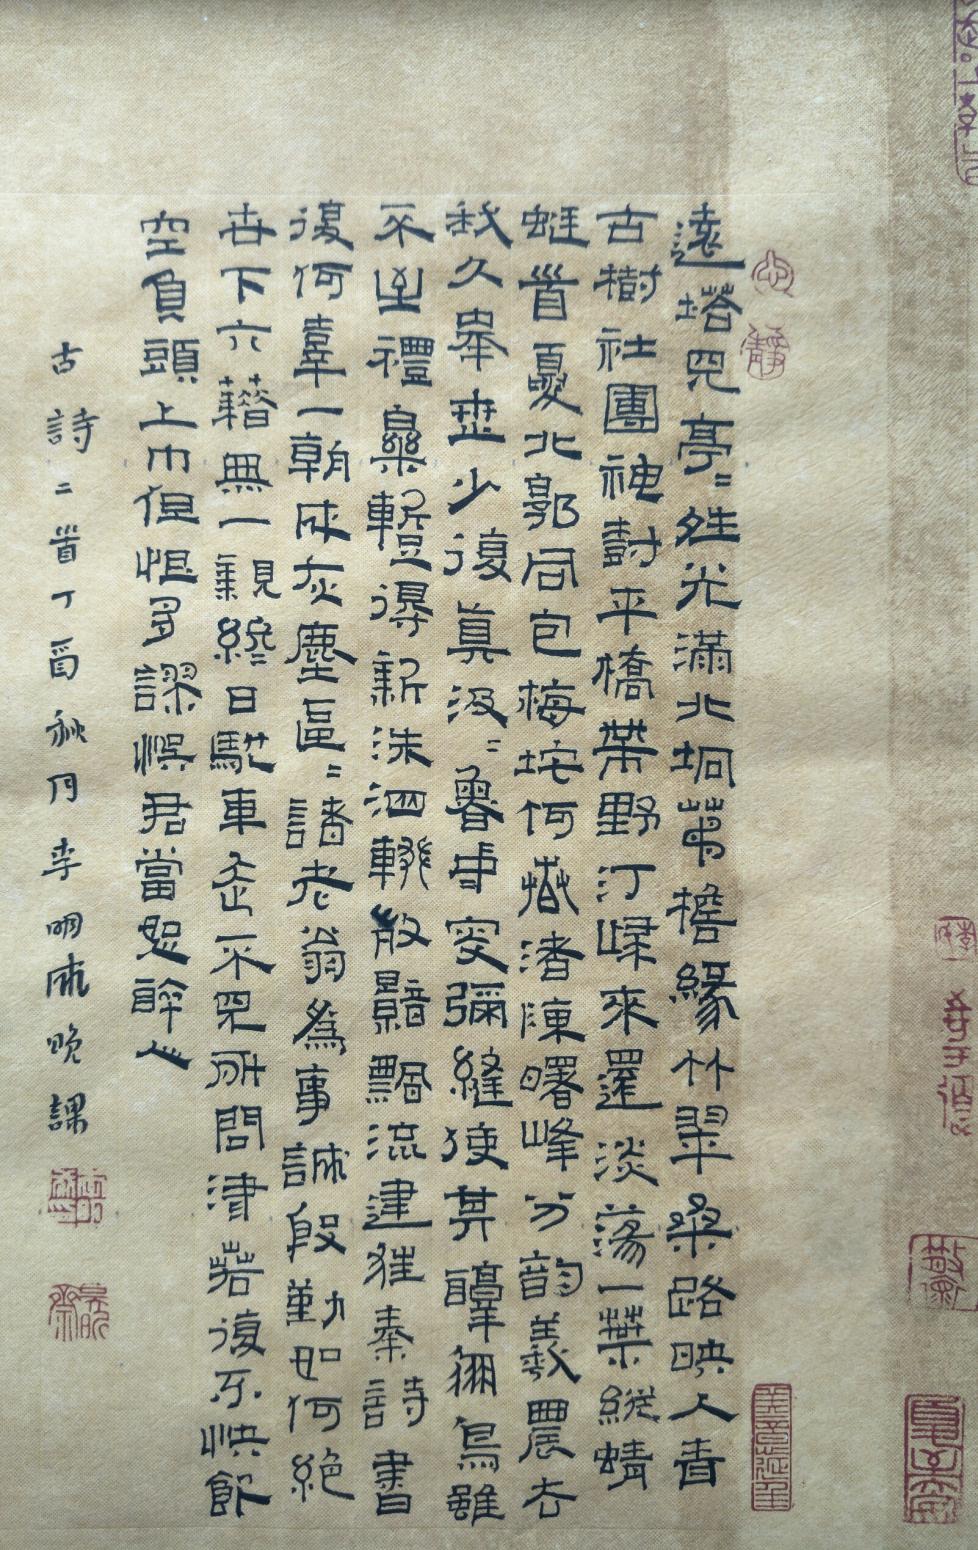 遠塔見亭=姓光滿北坰茅檐緣竹翠桑路映人青
古樹社團神封平橋帶野汀歸來還淡蕩一葉縱蜻
蜓首夏北郭同包梅垞何菽渚陳曙峰分韵羲農去
我久舉世少復真汲=魯中叟彌縫使其醇鳳鳥雖
不至禮樂暫得新洙泗輟微響飄流逮狂秦詩書
復何辜一朝成灰塵區=諸老翁為事誠殷勤如何絕
世下六籍無一親終日馳車走不見所問津若復不快飲
空負頭上巾但恨多謬誤君當恕醉人
古詩二首丁酉秋月李明成晚課